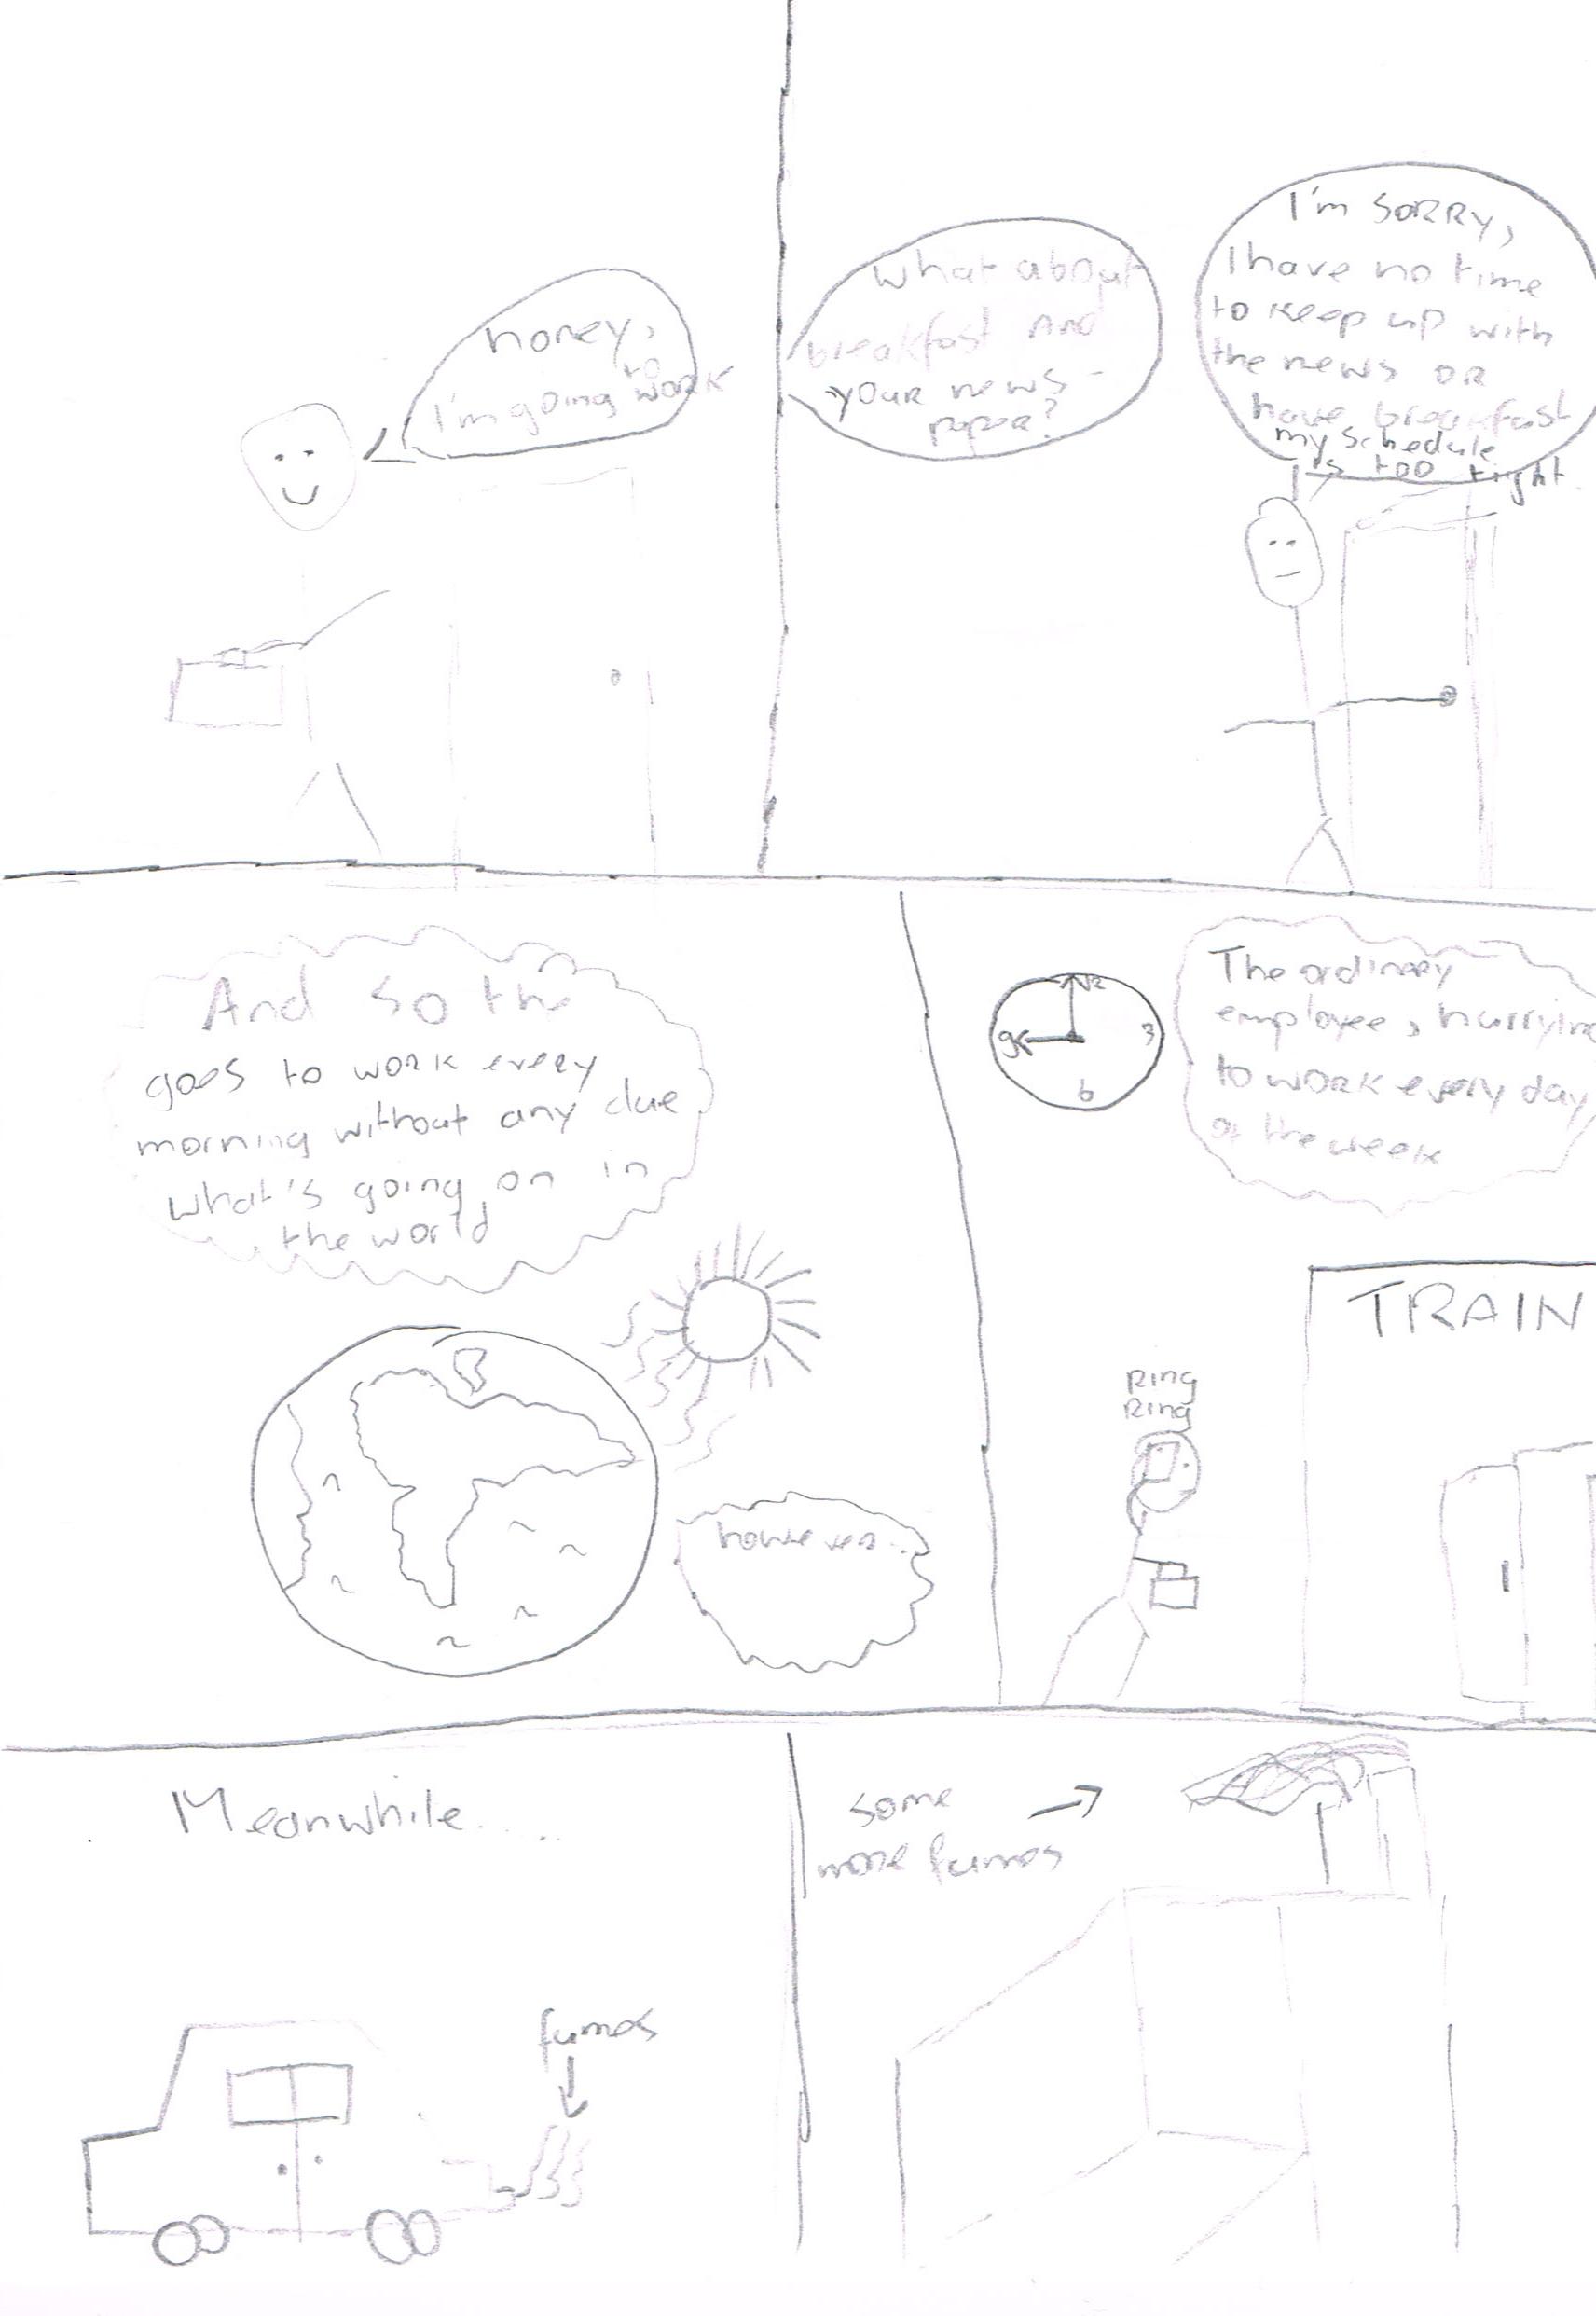 honey,
I'm going to work
What about
breakfast And
your news-
paper?
I'm SORRY,
I have no time
to keep up with
the news OR
have breakfast
my schedule
is too tight.
And so the
goes to work every
morning without any clue
what's going on in
the world
however...
12
9
3
6
The ordinary
employee, hurrying
to work every day
of the week
TRAIN
Ring
Ring
Meanwhile....
fumes
some
more fumes